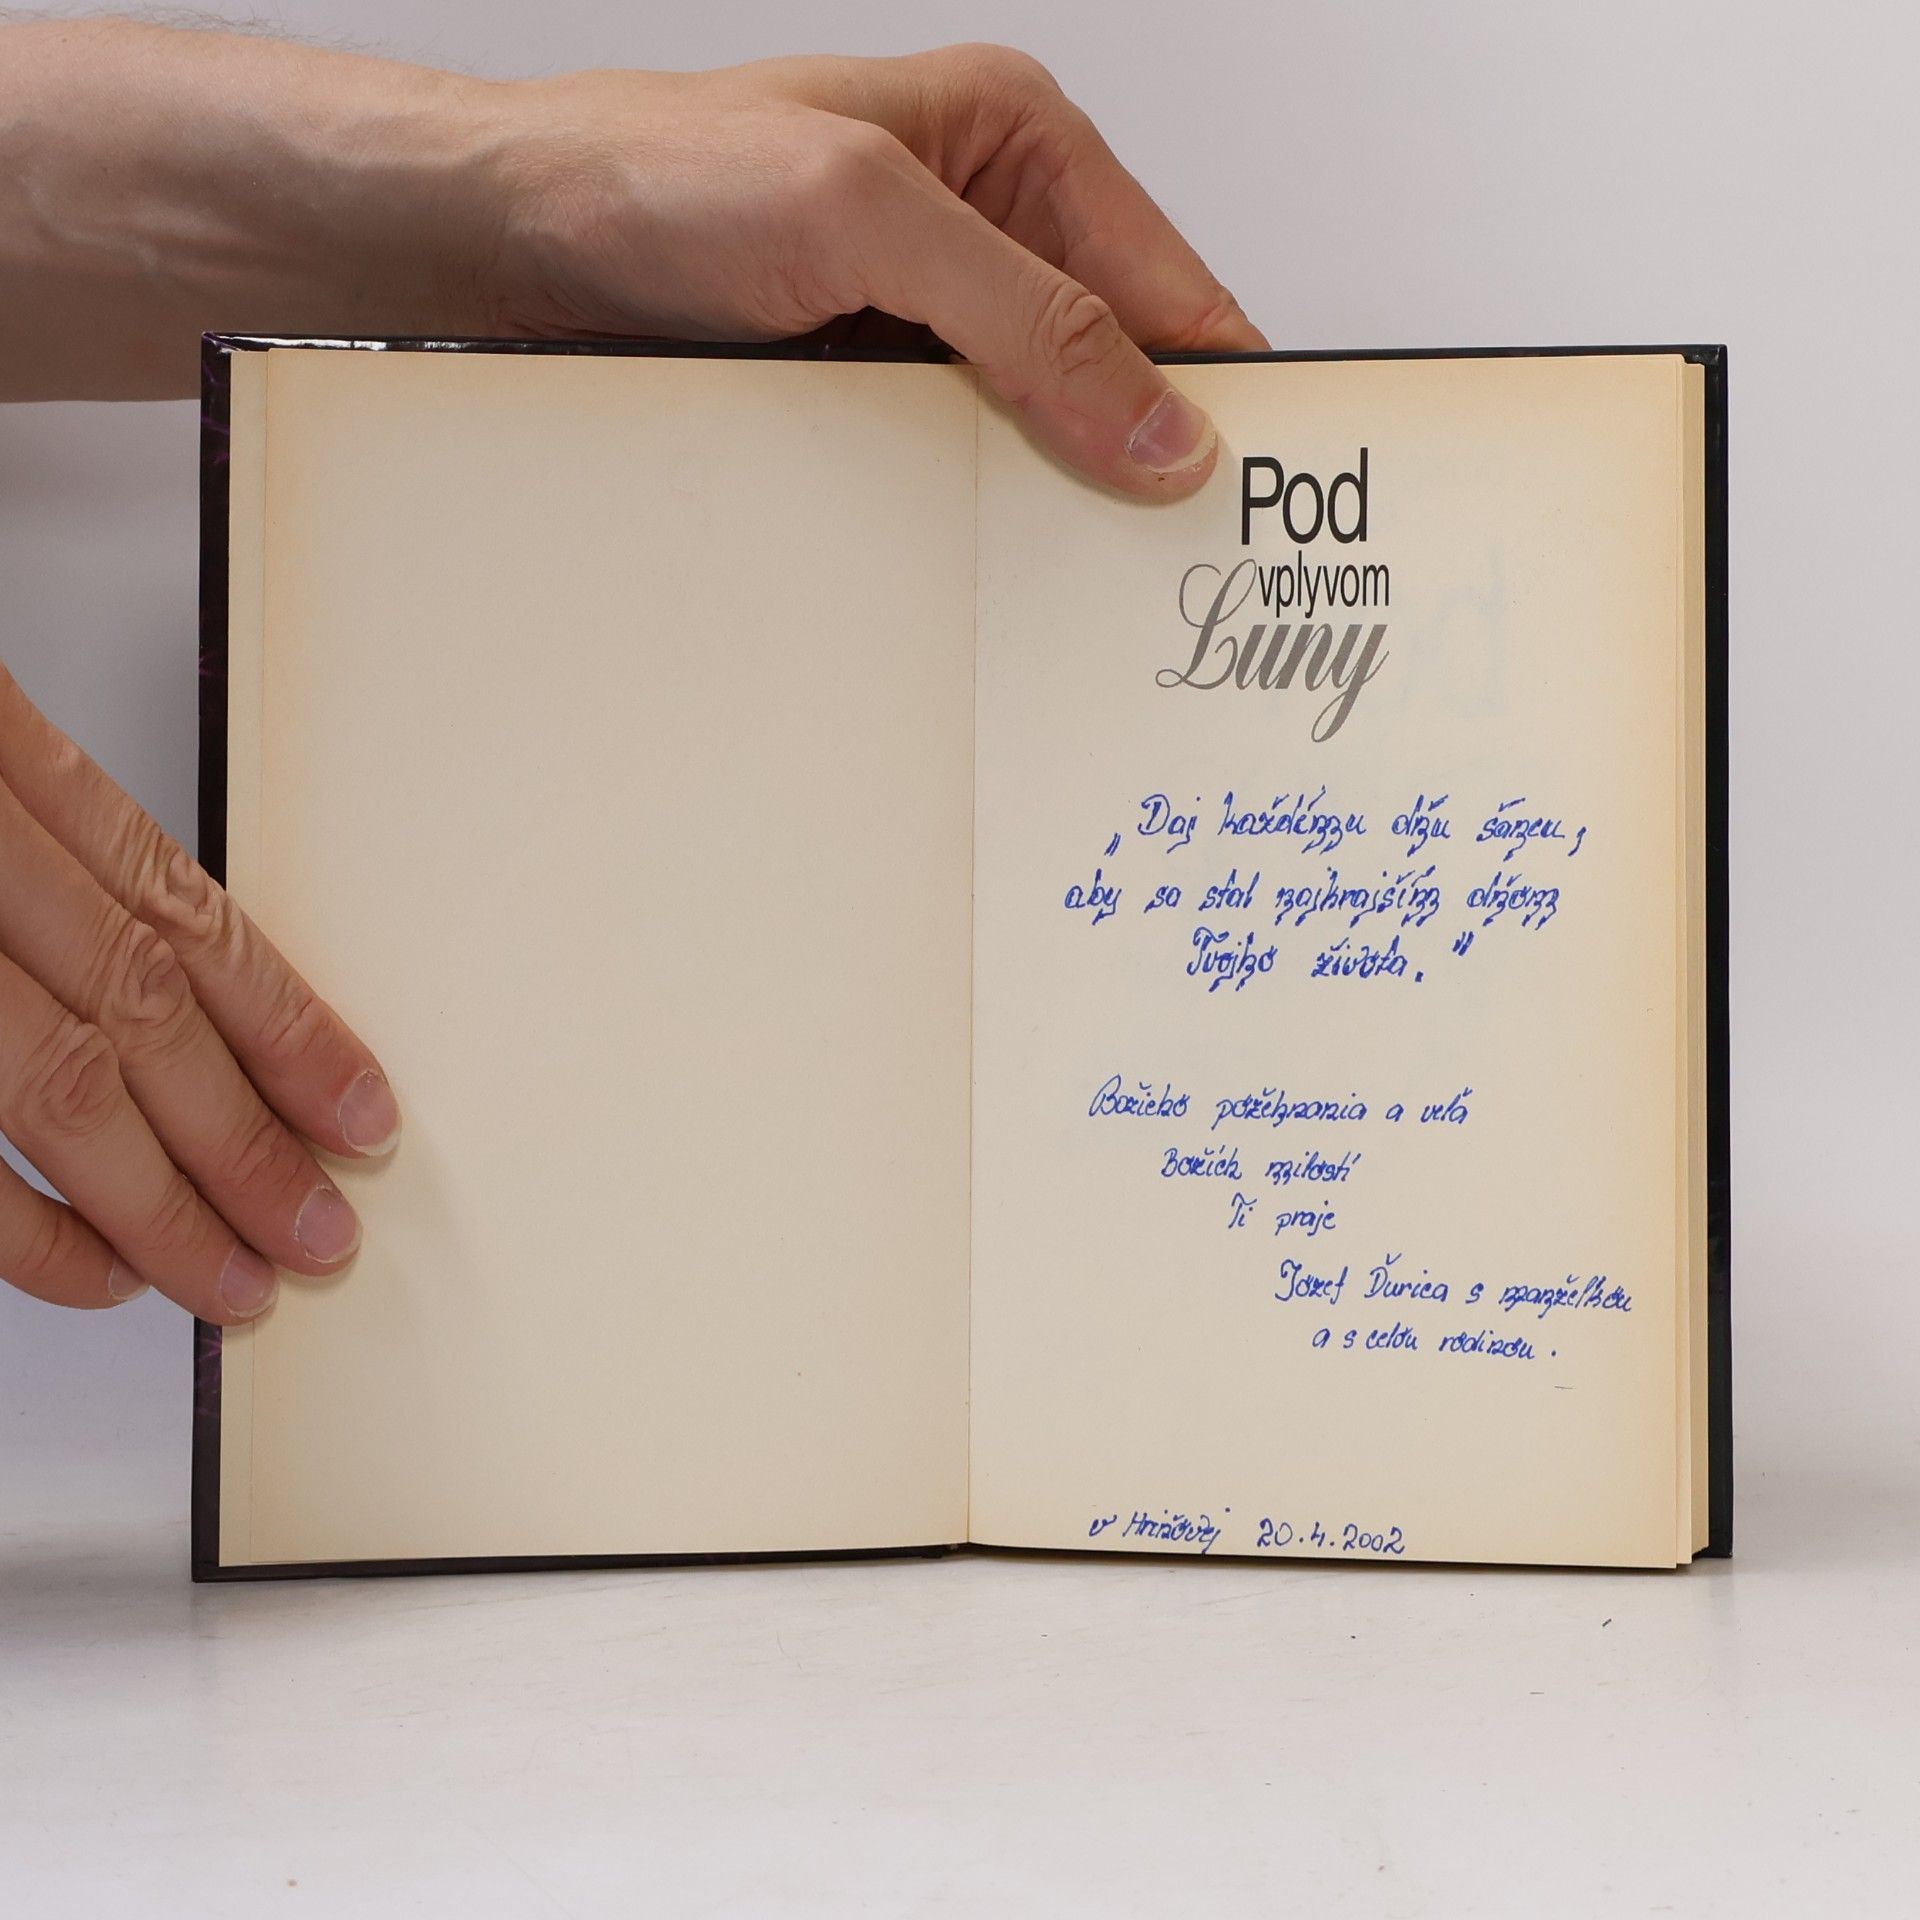 Pod
vplyvom
Luny
„Daj každému dňu šancu,
aby sa stal najkrajším dňom
Tvojho života."
Božieho požehnania a veľa
Božích milostí
Ti praje
Jozef Ďurica s manželkou
a s celou rodinou.
v Hriňovej 20.4.2002